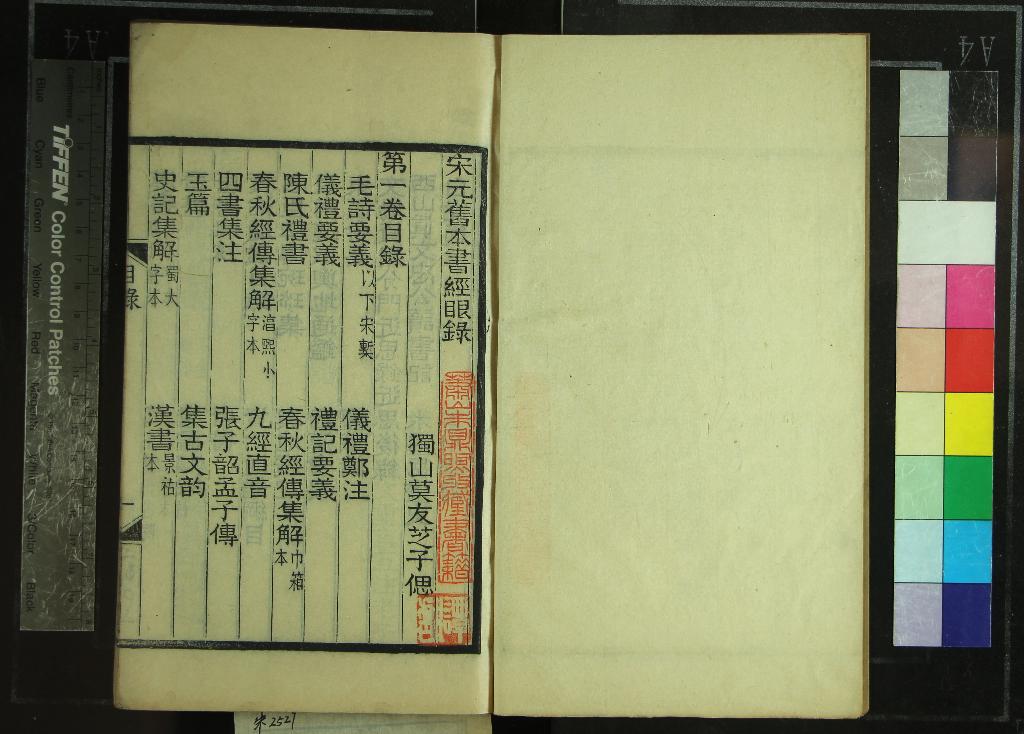 宋元舊本書經眼錄
獨山莫友芝子偲
第一卷目錄
毛詩要義以下宋槧 儀禮鄭注
儀禮要義 禮記要義
陳氏禮書 春秋經傳集解巾箱本
春秋經傳集解湻熙小字本 九經直音
四書集注 張子韶孟子傳
玉篇 集古文韵
史記集解蜀大字本 漢書景祐本
目錄
一
蕭山朱鼎煦收藏書籍
朱2527
TIFFEN Color Control Patches
Blue
Cyan
Green
Yellow
Red
Magenta
White
3/Color
Black
A4
A4